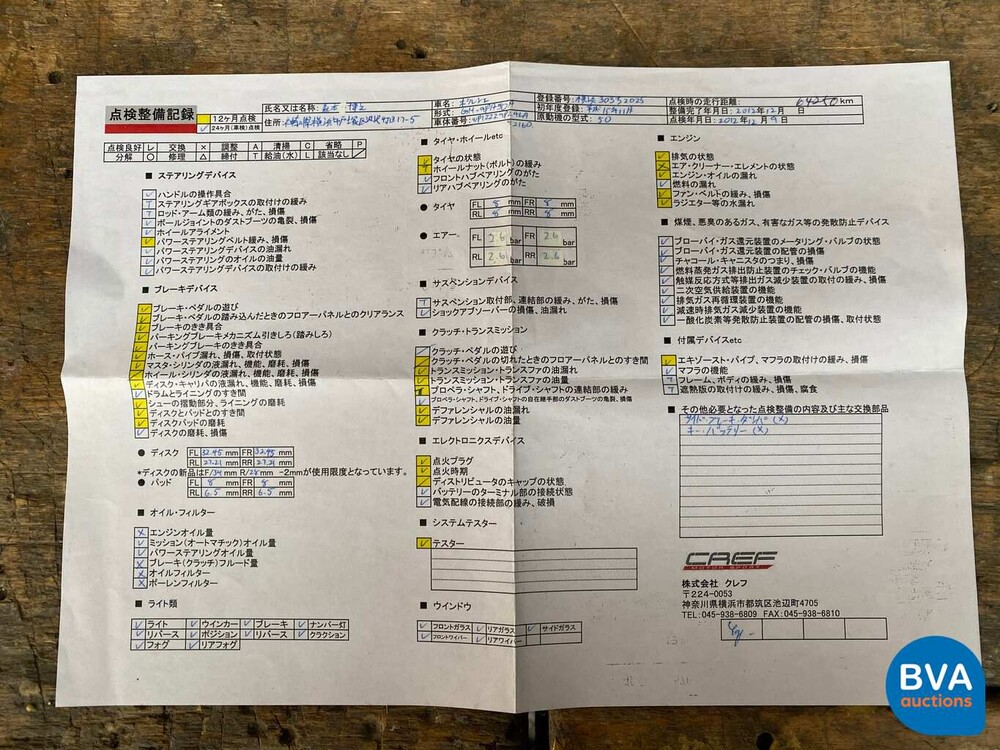 点検整備記録
12ヶ月点検
24ヶ月(車検)点検
氏名又は名称:
住所:
車名: ポルシェ
形式:
車体番号:
登録番号:
初年度登録:
原動機の型式: 50
点検時の走行距離: 64250 km
整備完了年月日: 2012年12月 日
点検年月日: 2012年12月9日
点検良好 レ 交換 × 調整 A 清掃 C 省略 P
分解 ○ 修理 △ 締付 T 給油(水) L 該当なし ／
■ ステアリングデバイス
ハンドルの操作具合
ステアリングギアボックスの取付けの緩み
ロッド・アーム類の緩み、がた、損傷
ボールジョイントのダストブーツの亀裂、損傷
ホイールアライメント
パワーステアリングベルト緩み、損傷
パワーステアリングデバイスの油漏れ
パワーステアリングのオイルの油量
パワーステアリングデバイスの取付けの緩み
■ ブレーキデバイス
ブレーキ・ペダルの遊び
ブレーキ・ペダルの踏み込んだときのフロアーパネルとのクリアランス
ブレーキのきき具合
パーキングブレーキメカニズム引きしろ(踏みしろ)
パーキングブレーキのきき具合
ホース・パイプ漏れ、損傷、取付状態
マスタ・シリンダの液漏れ、機能、磨耗、損傷
ホイール・シリンダの液漏れ、機能、磨耗、損傷
ディスク・キャリパの液漏れ、機能、磨耗、損傷
ドラムとライニングのすき間
シューの摺動部分、ライニングの磨耗
ディスクとパッドとのすき間
ディスクパッドの磨耗
ディスクの磨耗、損傷
● ディスク FL 32.45 mm FR 32.45 mm
RL 27.21 mm RR 27.21 mm
*ディスクの新品はF/34 mm R/28 mm -2mmが使用限度となっています。
● パッド FL 8 mm FR 8 mm
RL 6.5 mm RR 6.5 mm
■ オイル・フィルター
エンジンオイル量
ミッション(オートマチック)オイル量
パワーステアリングオイル量
ブレーキ(クラッチ)フルード量
オイルフィルター
ポーレンフィルター
■ ライト類
ライト ウインカー ブレーキ ナンバー灯
リバース ポジション リバース クラクション
フォグ リアフォグ
■ タイヤ・ホイールetc
タイヤの状態
ホイールナット(ボルト)の緩み
フロントハブベアリングのがた
リアハブベアリングのがた
● タイヤ FL 8 mm FR 8 mm
RL 8 mm RR 8 mm
● エアー FL 2.6 bar FR 2.6 bar
RL 2.6 bar RR 2.6 bar
■ サスペンションデバイス
サスペンション取付部、連結部の緩み、がた、損傷
ショックアブソーバーの損傷、油漏れ
■ クラッチ・トランスミッション
クラッチ・ペダルの遊び
クラッチ・ペダルの切れたときのフロアーパネルとのすき間
トランスミッション・トランスファの油漏れ
トランスミッション・トランスファの油量
プロペラ・シャフト、ドライブ・シャフトの連結部の緩み
プロペラ・シャフト、ドライブ・シャフトの自在継手部のダストブーツの亀裂、損傷
デファレンシャルの油漏れ
デファレンシャルの油量
■ エレクトロニクスデバイス
点火プラグ
点火時期
ディストリビュータのキャップの状態
バッテリーのターミナル部の接続状態
電気配線の接続部の緩み、破損
■ システムテスター
テスター
■ ウインドウ
フロントガラス リアガラス サイドガラス
フロントワイパー リアワイパー
■ エンジン
排気の状態
エア・クリーナー・エレメントの状態
エンジン・オイルの漏れ
燃料の漏れ
ファン・ベルトの緩み、損傷
ラジエター等の水漏れ
■ 煤煙、悪臭のあるガス、有害なガス等の発散防止デバイス
ブローバイ・ガス還元装置のメータリング・バルブの状態
ブローバイ・ガス還元装置の配管の損傷
チャコール・キャニスタのつまり、損傷
燃料蒸発ガス排出防止装置のチェック・バルブの機能
触媒反応方式等排出ガス減少装置の取付の緩み、損傷
二次空気供給装置の機能
排気ガス再循環装置の機能
減速時排気ガス減少装置の機能
一酸化炭素等発散防止装置の配管の損傷、取付状態
■ 付属デバイスetc
エキゾースト・パイプ、マフラの取付けの緩み、損傷
マフラの機能
フレーム、ボディの緩み、損傷
遮熱版の取付けの緩み、損傷、腐食
■ その他必要となった点検整備の内容及び主な交換部品
サイドブレーキ・ダンパ (X)
キー・バッテリー (X)
CREF
MOTOR SPORT
株式会社 クレフ
〒224-0053
神奈川県横浜市都筑区池辺町4705
TEL:045-938-6809 FAX:045-938-6810
BVA
auctions